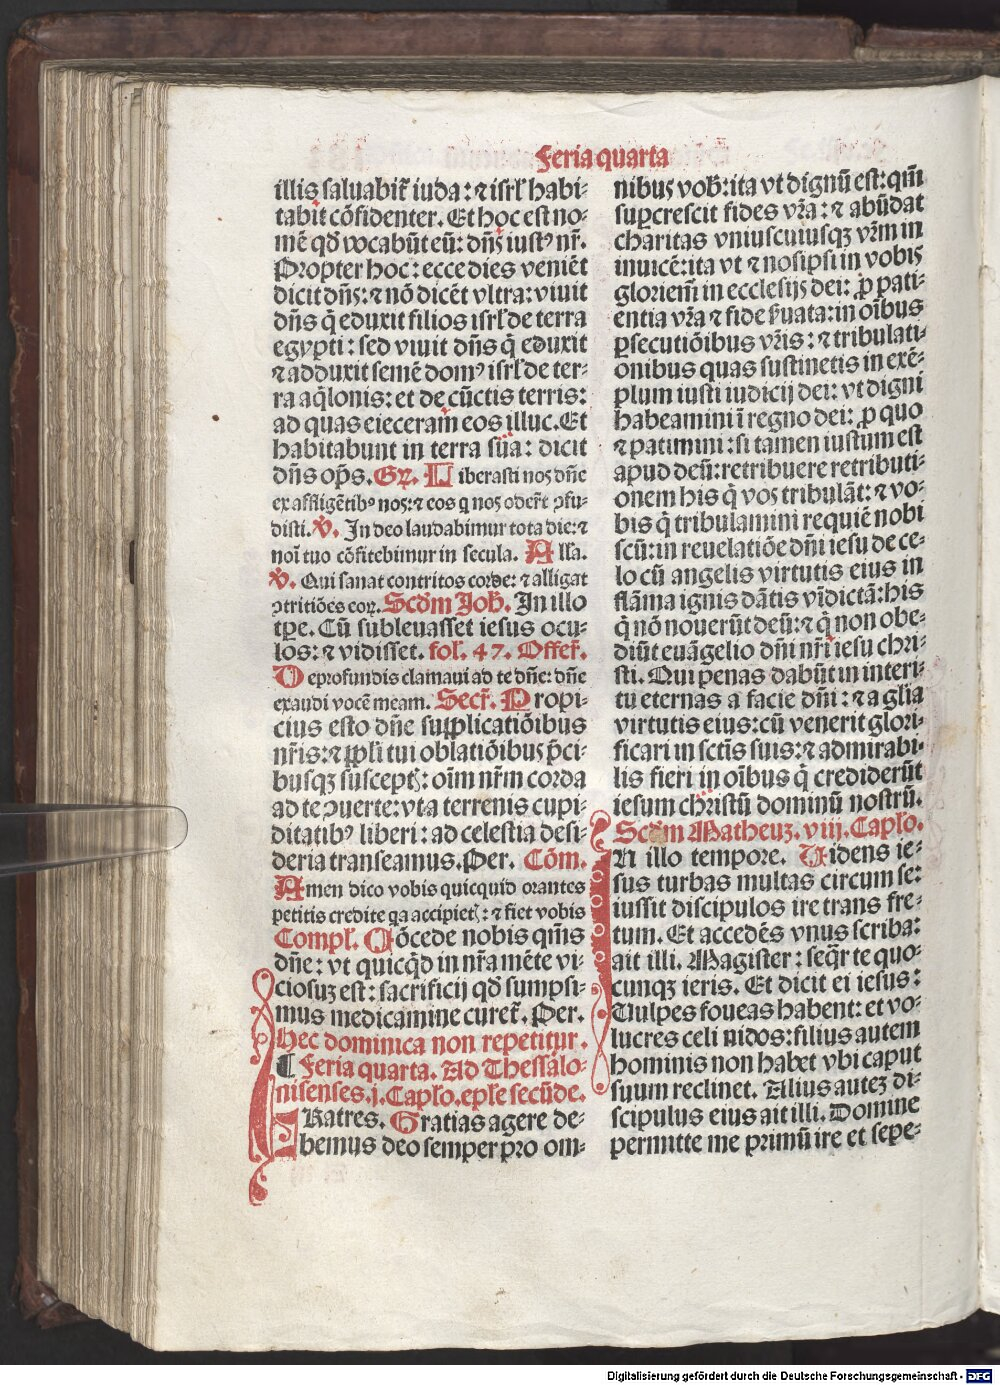 Feria quarta
illis saluabit᷑ iuda: ⁊ isrl̕ habi⸗
tabit cōfidenter. Et hoc est no⸗
mē qd̕ vocabūt eū: dn̄s iust⁹ nr̄.
Propter hoc: ecce dies veniēt
dicit dn̄s: ⁊ nō dicēt vltra: viuit
dn̄s q̄ eduxit filios isrl̕ de terra
egypti: sed viuit dn̄s q̄ eduxit
⁊ adduxit semē dom⁹ isrl̕ de ter⸗
ra aq̄lonis: et de cūctis terris:
ad quas eieceram eos illuc. Et
habitabunt in terra sua: dicit
dn̄s op̄s. Gr̄. Liberasti nos dn̄e
ex affligētib⁹ nos: ⁊ eos q nos oder̄t ꝓfu⸗
disti. ℣. In deo laudabimur tota die: ⁊
noī tuo cōfitebimur in secula. Alla.
℣. Qui sanat contritos corde: ⁊ alligat
ↄtritiōes eoꝝ. Scd̕m Joh̕. In illo
tp̄e. Cū subleuasset iesus ocu⸗
los: ⁊ vidisset. fol̕. 47. Offer̄.
De profundis clamaui ad te dn̄e: dn̄e
exaudi vocē meam. Secr̄. Propi⸗
cius esto dn̄e supplicatiōibus
nr̄is: ⁊ ppl̕i tui oblatiōibus p̄ci⸗
busqꝫ susceptꝭ: oīm nr̄m corda
ad te ↄuerte: vt a terrenis cupi⸗
ditatib⁹ liberi: ad celestia desi⸗
deria transeamus. Per. Cōm.
Amen dico vobis quicquid orantes
petitis credite qa accipietꝭ: ⁊ fiet vobis
Compl̕. Cōcede nobis qm̄s
dn̄e: vt quicq̄d in nr̄a mēte vi⸗
ciosuꝫ est: sacrificij qd̕ sumpsi⸗
mus medicamine curet᷑. Per.
Hec dominica non repetitur.
¶ Feria quarta. Ad Thessalo⸗
nisenses. j. Capl̕o. epl̕e secūde.
FRatres. Gratias agere de⸗
bemus deo semper pro om⸗
nibus vob̕: ita vt dignū est: qm̄
supcrescit fides vr̄a: ⁊ abūdat
charitas vniuscuiusqꝫ vr̄m in
inuicē: ita vt ⁊ nosipsi in vobis
gloriem̄ in ecclesijs dei: ꝓ pati⸗
entia vr̄a ⁊ fide ſ̕uata: in oībus
ꝑsecutiōibus vr̄is: ⁊ tribulati⸗
onibus quas sustinetis in exē⸗
plum iusti iudicij dei: vt digni
habeamini ī regno dei: ꝓ quo
⁊ patimini: si tamen iustum est
apud deū: retribuere retributi⸗
onem his q̄ vos tribulāt: ⁊ vo⸗
bis q̄ tribulamini requiē nobi
scū: in reuelatiōe dn̄i iesu de ce⸗
lo cū angelis virtutis eius in
flāma ignis dātis vīdictā: his
q̄ nō nouerūt deū: ⁊ q̄ non obe⸗
diūt euāgelio dn̄i nr̄i iesu chri⸗
sti. Qui penas dabūt in interi⸗
tu eternas a facie dn̄i: ⁊ a glīa
virtutis eius: cū venerit glori⸗
ficari in sctīs suis: ⁊ admirabi⸗
lis fieri in oībus q̄ crediderūt
iesum christū dominū nostrū.
Scd̕m Matheuꝫ. viij. Capl̕o.
IN illo tempore. Videns ie⸗
sus turbas multas circum se:
iussit discipulos ire trans fre⸗
tum. Et accedēs vnus scriba:
ait illi. Magister: seq̄r te quo⸗
cunqꝫ ieris. Et dicit ei iesus:
Vulpes foueas habent: et vo⸗
lucres celi nidos: filius autem
hominis non habet vbi caput
suum reclinet. Alius auteꝫ di⸗
scipulus eius ait illi. Domine
permitte me primū ire et sepe⸗
Digitalisierung gefördert durch die Deutsche Forschungsgemeinschaft - DFG